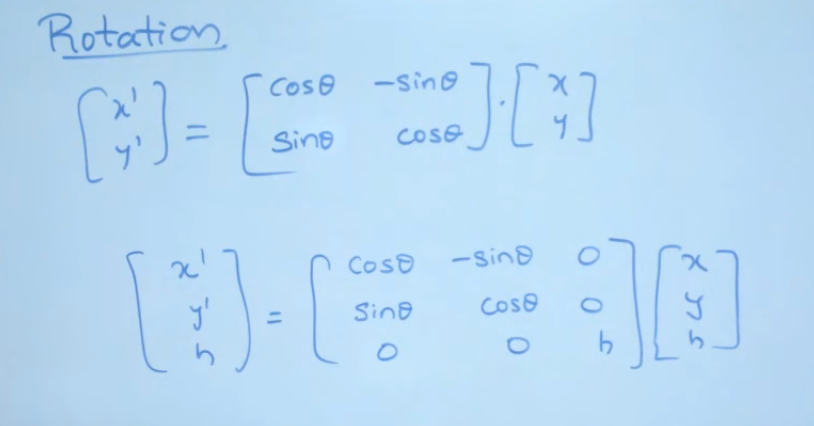 Rotation
[x' y'] = [cosθ -sinθ sinθ cosθ] . [x y]
[x' y' h] = [cosθ -sinθ 0 sinθ cosθ 0 0 0 h] [x y h]